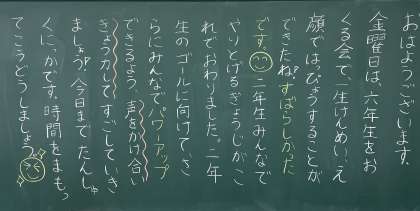 おはようございます
金曜日は、六年生をお
くる会で一生けんめい、え
顔ではっぴょうすることが
できたね。すばらしかった
です。二年生みんなで
やりとげるぎょうじがこ
れでおわりました。二年
生のゴールに向けて、さ
らにみんなでパワーアップ
できるよう、声をかけ合い
きょう力してすごしていき
ましょう。今日まで たんしゅ
くに、かです。時間をまもっ
てこうどうしましょう